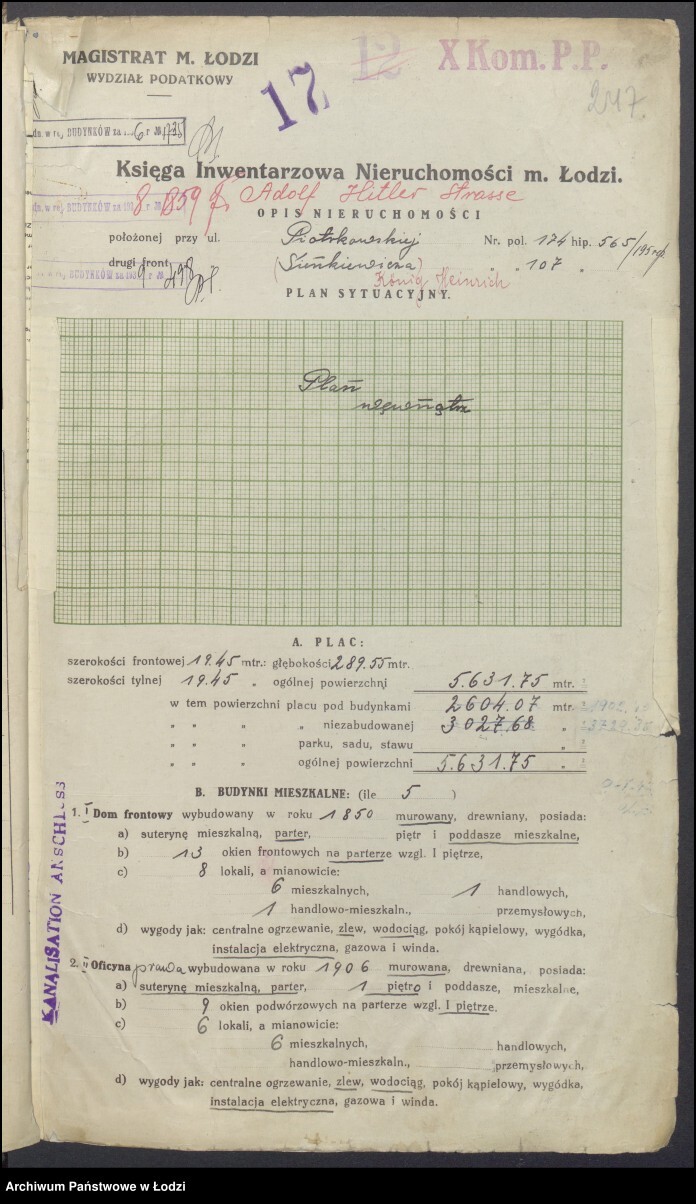 MAGISTRAT M. ŁODZI
WYDZIAŁ PODATKOWY
17
12
X Kom. P. P.
247.
BUDYNKÓW za 6 r №
Księga Inwentarzowa Nieruchomości m. Łodzi.
BUDYNKÓW za 193 8 r № 859
Adolf Hitler Strasse
OPIS NIERUCHOMOŚCI
położonej przy ul. Piotrkowskiej Nr. pol. 174 hip. 565
drugi front (Sienkiewicza) „ „ 107 „
BUDYNKÓW za 193 9 r № 498
König Heinrich
PLAN SYTUACYJNY.
Plan
wewnątrz
A. PLAC:
szerokości frontowej 19.45 mtr.: głębokości 289.55 mtr.
szerokości tylnej 19.45 „ ogólnej powierzchni 5.631.75 mtr. ²
w tem powierzchni placu pod budynkami 2604.07 mtr. ²
„ „ „ „ niezabudowanej 3027.68 „ ²
„ „ „ parku, sadu, stawu „ ²
„ „ „ ogólnej powierzchni 5.631.75 „ ²
B. BUDYNKI MIESZKALNE: (ile 5 )
1. I Dom frontowy wybudowany w roku 1850 murowany, drewniany, posiada:
a) suterynę mieszkalną, parter, piętr i poddasze mieszkalne,
b) 13 okien frontowych na parterze wzgl. I piętrze,
c) 8 lokali, a mianowicie:
6 mieszkalnych, 1 handlowych,
1 handlowo-mieszkaln., przemysłowych,
d) wygody jak: centralne ogrzewanie, zlew, wodociąg, pokój kąpielowy, wygódka,
instalacja elektryczna, gazowa i winda.
2. II Oficyna prawa wybudowana w roku 1906 murowana, drewniana, posiada:
a) suterynę mieszkalną, parter, 1 piętro i poddasze, mieszkalne,
b) 9 okien podwórzowych na parterze wzgl. I piętrze.
c) 6 lokali, a mianowicie:
6 mieszkalnych, handlowych,
handlowo-mieszkaln., przemysłowych,
d) wygody jak: centralne ogrzewanie, zlew, wodociąg, pokój kąpielowy, wygódka,
instalacja elektryczna, gazowa i winda.
KANALISATION ANSCHLUSS
Archiwum Państwowe w Łodzi